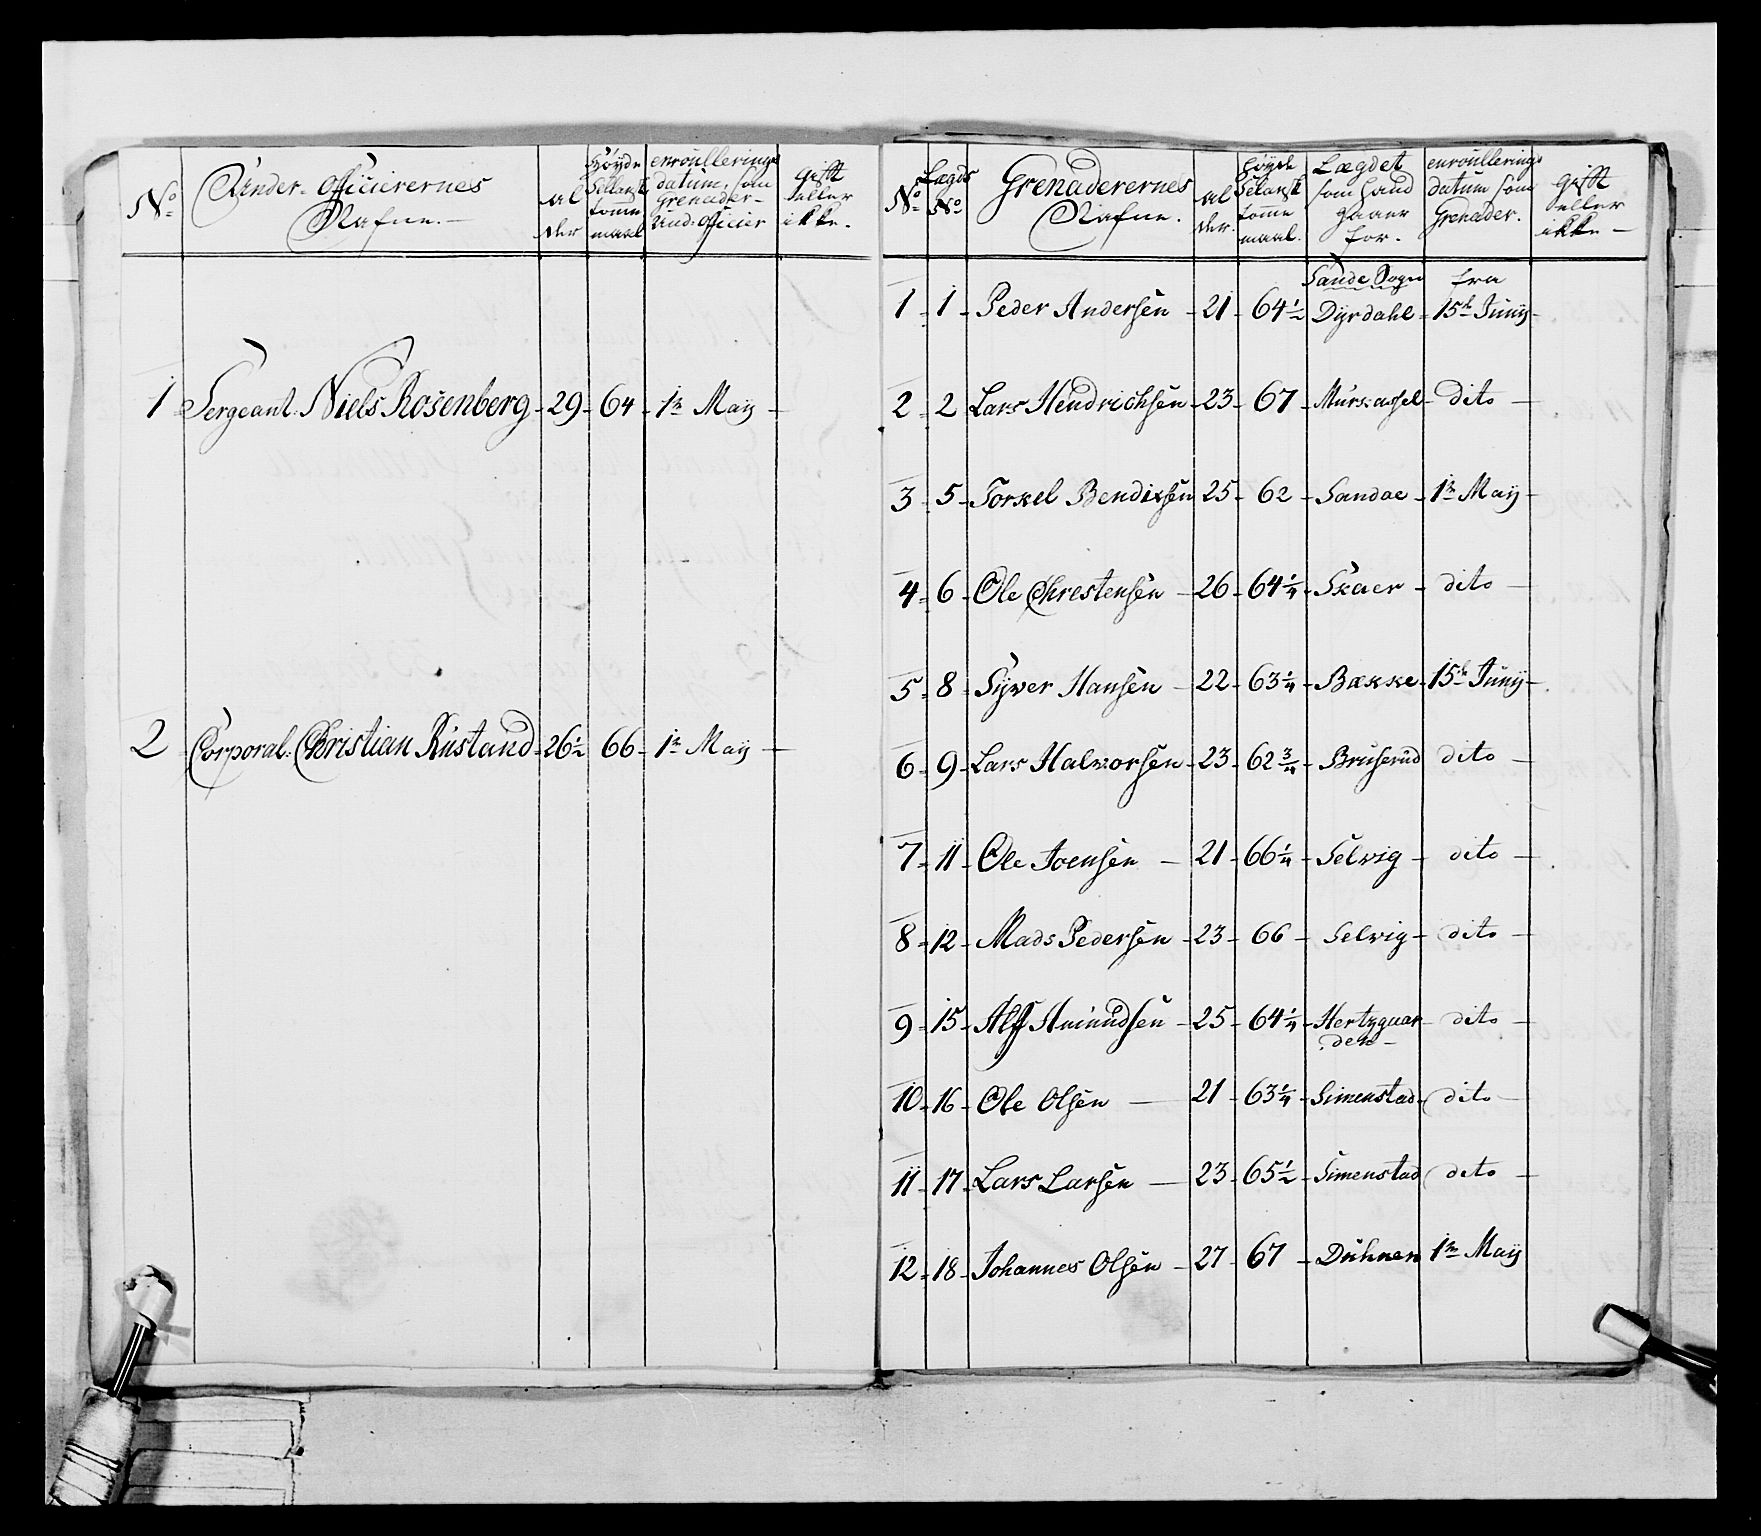 No
Under-Officierernes
Nafne.-
al
der
Høyde
Selansk
tomme
maal
enroullerings
datum, som
Grenader-
Und: Officier
Gift
eller
ikke.
1 Sergeant. Niels Rosenberg - 29 - 64 - 1te May -
2 Corporal. Christian Rustand - 26½ 66 - 1te May -
No
Lægds
No
Grenaderernes
Nafne.
al
der.
høyde
Selansk
tomme
maal.
Lægdet
som hand
gaaer
for.
enroullerings
datum som
Grenader.
gift
eller
ikke -
Sande Sogn fra
1 - 1 - Peder Andersen - 21 - 64½ Dyrdahl - 15de Juny -
2 - 2 Lars Hendrichsen - 23 - 67 - Murskassel - dito -
3 - 5 - Torkel Bendixsen 25 - 62 - Sandae - 1te May -
4 - 6 - Ole Chrestensen - 26 - 64¼ - Skaer - dito -
5 - 8 - Syver Hansen - 22 - 63¼ - Bække - 15de Juny -
6 - 9 - Lars Halvorsen - 23 - 62¾ - Bruserud dito -
7 - 11 - Ole Joensen - 21 - 66¼ - Selvig - dito -
8 - 12 - Mads Pedersen - 23 - 66 - Selvig - dito -
9 - 15 - Alf Amundsen - 25 - 64¼ - Hertzguar- dito -
den -
10 - 16 - Ole Olsen - 21 - 63¼ - Simenstad - dito -
11 - 17 - Lars Larsen - 23 - 65½ - Simenstad dito -
12 - 18 - Johannes Olsen - 27 - 67 - Duhnen 1te May